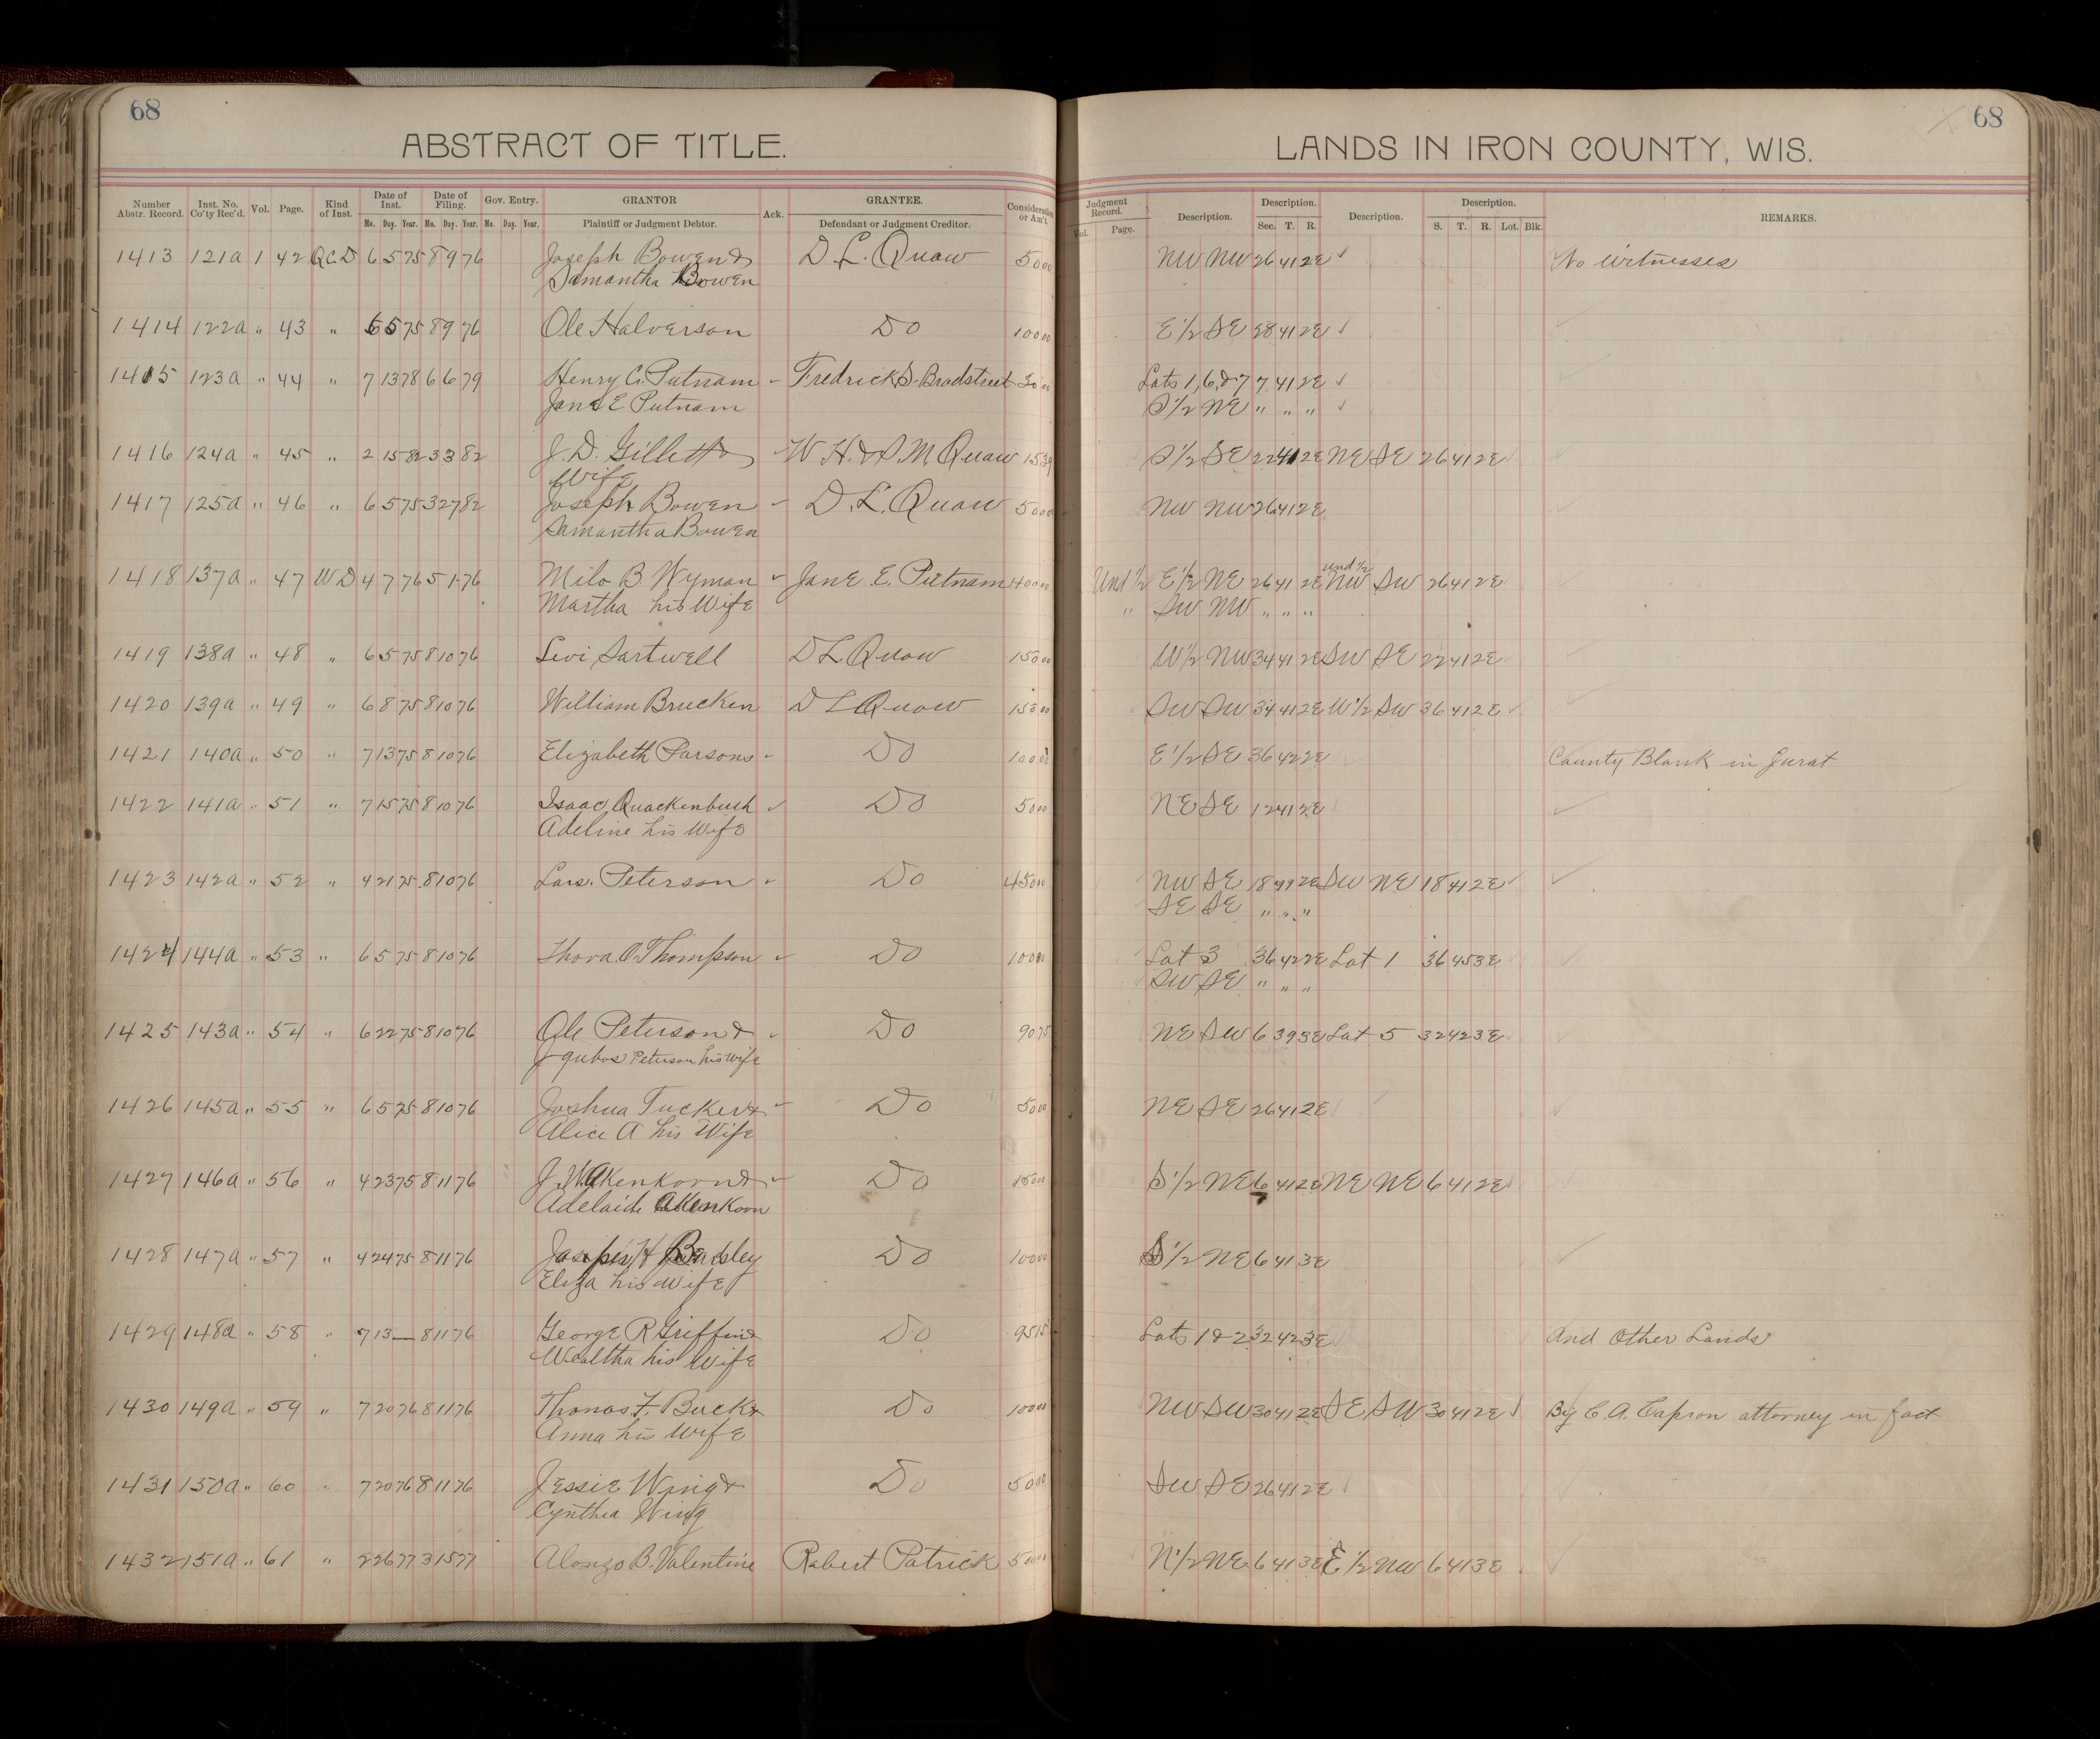 68
68
ABSTRACT OF TITLE.
LANDS IN IRON COUNTY, WIS.
Number Abstr. Record. Inst. No. Co'ty Rec'd. Vol. Page. Kind of Inst. Date of Inst. Date of Filing. Gov. Entry. GRANTOR Ack. GRANTEE. Consideration or Am't. Judgment Record. Description. Description. Description. Description. REMARKS.
Mo. Day. Year. Mo. Day. Year. Mo. Day. Year. Plaintiff or Judgment Debtor. Defendant or Judgment Creditor. Vol. Page. Sec. T. R. S. T. R. Lot. Blk.
1413 121a 1 42 QCD 6 5 75 8 9 76 Joseph Bowen & D. L. Quaw 50 00 NW NW 26 41 2E ✓ No Witnesses
Samantha Bowen
1414 122a " 43 " 6 5 75 8 9 76 Ole Halverson Do 100 00 E 1/2 SE 28 41 2E ✓
1415 123a " 44 " 7 13 78 6 6 79 Henry C. Putnam Fredrick S. Bradstreet 30 00 Lots 1, 6, & 7 7 41 2E ✓
Jane E Putnam S 1/2 NE " " " ✓
1416 124a " 45 " 2 15 82 3 3 82 J. D. Gillett & W H. & S. M Quaw 15 39 S 1/2 SE 22 41 2E NE SE 26 41 2E
Wife
1417 125a " 46 " 6 5 75 3 27 82 Joseph Bowen D. L. Quaw 50 00 NW NW 26 41 2E
Samantha Bowen
1418 137a " 47 WD 4 7 76 5 1 76 Milo B. Wyman Jane E. Putnam 400 00 Und 1/2 E 1/2 NE 26 41 2E und 1/2 NW SW 26 41 2E
Martha his Wife " SW NW " " "
1419 138a " 48 " 6 5 75 8 10 76 Levi Sartwell D L Quaw 150 00 W 1/2 NW 34 41 2E SW SE 22 41 2E
1420 139a " 49 " 6 8 75 8 10 76 William Brucken D L Quaw 150 00 SW SW 34 41 2E W 1/2 SW 36 41 2E
1421 140a " 50 " 7 13 75 8 10 76 Elizabeth Parsons Do 100 00 E 1/2 SE 36 42 2E County Blank in Jurat
1422 141a " 51 " 7 15 75 8 10 76 Isaac Quackenbush Do 50 00 NE SE 12 41 2E
Adeline his Wife
1423 142a " 52 " 4 21 75 8 10 76 Lars. Peterson Do 450 00 NW SE 18 41 2E SW NE 18 41 2E
SE SE " " "
1424 144a " 53 " 6 5 75 8 10 76 Thora O. Thompson Do 100 00 Lot 3 36 42 2E Lot 1 36 45 3E
SW SE " " "
1425 143a " 54 " 6 22 75 8 10 76 Ole Peterson & Do 90 75 NE SW 6 39 3E Lot 5 32 42 3E
Peterson his Wife
1426 145a " 55 " 6 5 75 8 10 76 Joshua Tucker & Do 50 00 NE SE 26 41 2E
Alice A his Wife
1427 146a " 56 " 4 23 75 8 11 76 J. W. Akenkorn & Do 150 00 S 1/2 NE 6 41 2E NE NE 6 41 2E
Adelaide Akenkorn
1428 147a " 57 " 4 24 75 8 11 76 Do 100 00 S 1/2 NE 6 41 3E
Eliza his wife
1429 148a " 58 " 7 13 — 8 11 76 George R Griffin & Do 95 15 Lots 1 & 2 32 42 3E And Other Lands
Wealtha his Wife
1430 149a " 59 " 7 20 76 8 11 76 Thomas F. Buck & Do 100 00 NW SW 30 41 2E SE SW 30 41 2E ✓ By C. A. Capron attorney in fact
Anna his Wife
1431 150a " 60 " 7 20 76 8 11 76 Jessie Wing & Do 50 00 SW SE 26 41 2E
Cynthia Wing
1432 151a " 61 " 2 26 77 3 15 77 Alonzo B. Valentine Robert Patrick 500 N 1/2 NE 6 41 3E E 1/2 NW 6 41 3E